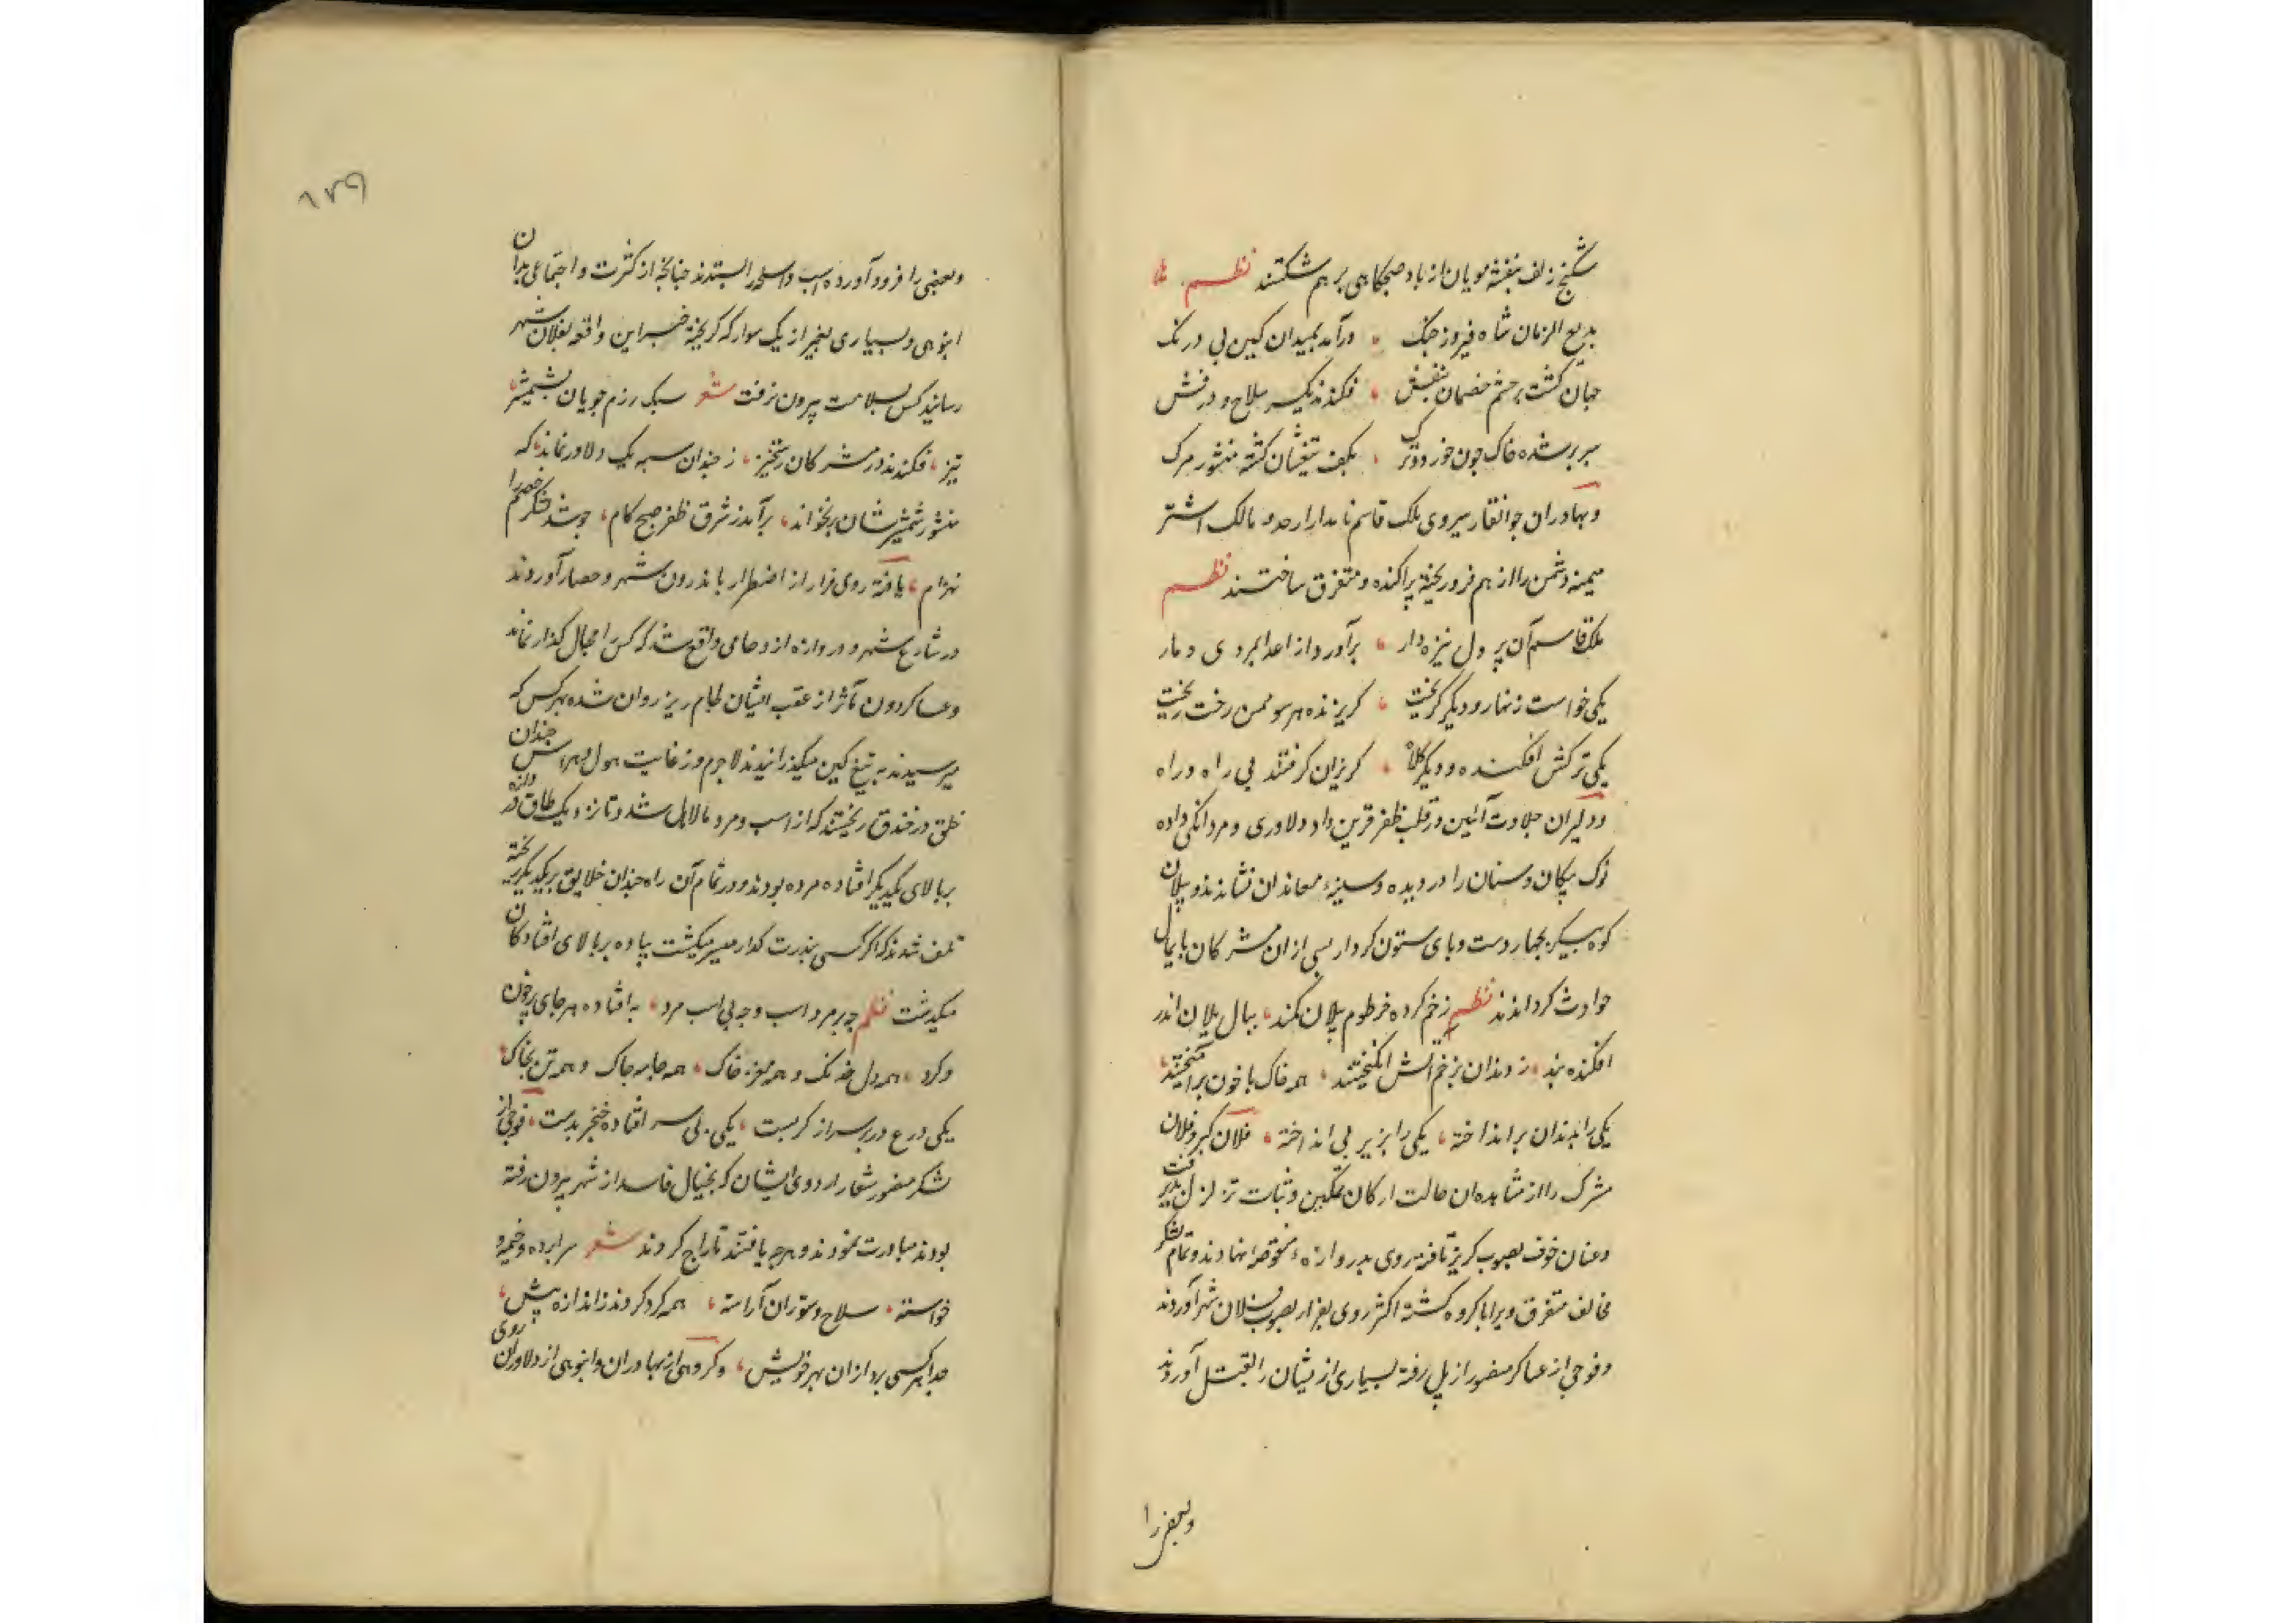 شکنج زلف بنفشه مویان از باد صبحکاهی بر هم شکستند نظم
بدیع الزمان شاه فیروز جنک درآمد بمیدان کین بی درنک
جهان کشت بر چشم خصمان بنفش فکندند یکسر سلاح و درفش
سربر شده خاک چون خود و ترک بکف تیغشان کشته منشور مرک
و بهادران جوانقار سیروی ملک قاسم نامدار و مالک اشتر
میمنه دشمن را از هم فرو ریخته پراکنده و متفرق ساختند نظم
ملک قاسم آن پر دل نیزه دار برآورد از اعدا بمردی دمار
یکی خواست زنهار و دیکر کریخت کریزنده هر سو همی رخت ریخت
یکی ترکش افکنده و دیکر کلاه کریزان کرفتند بی راه و راه
و دلیران جلادت آئین در قلب ظفر قرین داد دلاوری و مردانکی داده
نوک پیکان و سنان را در دیده و سینهٔ معاندان نشاندند و پیلان
کوه پیکر بچهار دست و پای ستون کردار بسی از ان مشرکان پایمال
حوادث کردانیدند نظم زخم کرده خرطوم پیلان کمند بیال یلان اندر
افکنده بند ز دندان بزخم آتش انکیختند همه خاک با خون برآمیختند
یکی را بدندان برانداخته یکی را بزیر پی انداخته فلان کبر و فلان
مشرک را از مشاهده ان حالت ارکان تمکین و ثبات تزلزل پذیرفت
و عنان خوف بصوب کریز تافته روی بدروازهٔ نهادند و تمام لشکر
مخالف متفرق و کروه کشته اکثر روی بفرار بصوب فلان شهر آوردند
و فوجی از عساکر منصور از پل رفته بسیاری از یشان را بقتل آوردند
وبعضی را
۱۷۹
وبعضی را فرود آورده اسب و اسلحه را بستدند چنانچه از کثرت و اجتماعی بدان
انبوهی و بسیاری بغیر از یک سوار که کریخته خبر این واقعه بفلان شهر
رسانید کس بسلامت بیرون نرفت شعر سبک رزم جویان بشمشیر
تیز فکندند در مشرکان رستخیز ز چندان سپه یک دلاور نماند که
منشور شمشیرشان برنخواند برآمد ز شرق ظفر صبح کام چو شد لشکر خصم را
نهزام یافته روی فرار از اضطرار باندرون شهر و حصار آوردند
در شارع شهر و دروازه ازدحامی واقع شد که کس را مجال کذار نماند
و عساکر دون مآثر از عقب ایشان لجام ریز روان شده بهر کس که
میرسیدند به تیغ کین میکذرانیدند لاجرم و ز غایت هول و هراس چندان
خلق در خندق ریختند که از اسب و مرد مالامال شد و تا نزدیک طاق دروازه
بر بالای یکدیکر افتاده مرده بودند و در تمام آن راه چندان خلایق بر یکدیکر ریخته
تلف شدند که اکر کسی بندرت کذار میسر میکشت پیاده بر بالای افتادکان
میکذشت نظم چه بر مرد اسب و چه بی اسب مرد به افتاده هر جای پر خون
و کرد همه دل خدنک و همه مغز خاک همه جامه چاک و همه تن بخاک
یکی درع در بر سر از کرز پست یکی بی سر افتاده خنجر بدست فوجی از
لشکر منصور شعار اردوی ایشان که بخیال فاسد از شهر بیرون رفته
بودند مبادرت نمودند و هرچه یافتند تاراج کردند شعر سراپرده و خیمه و
خواسته سلاح و ستوران آراسته همه کرد کردند ز اندازه پیش
جدا هر کسی برد از ان بهر خویش و کروهی از بهادران و انبوهی از دلاوران روی